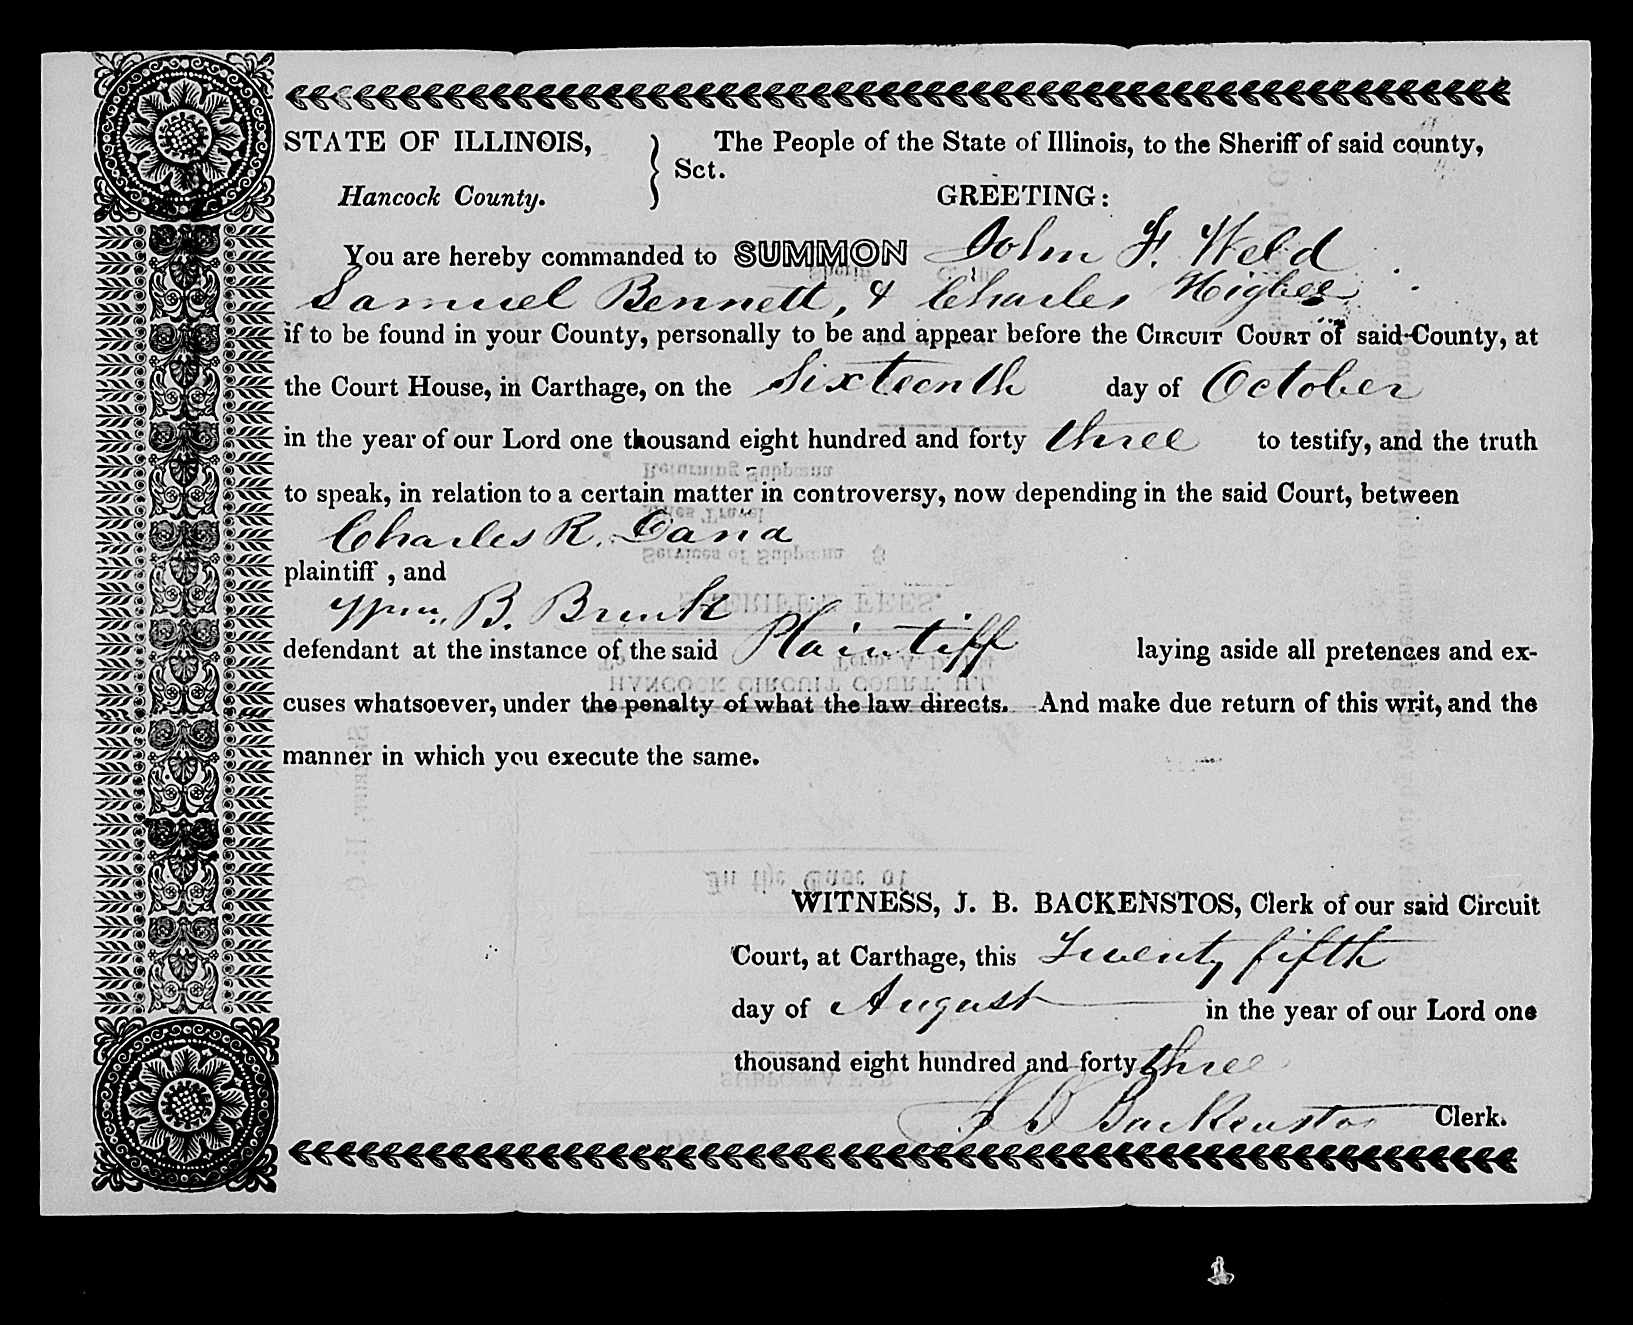 STATE OF ILLINOIS, } Sct. The People of the State of Illinois, to the Sheriff of said county,
Hancock County. GREETING:
You are hereby commanded to SUMMON John F. Weld
Samuel Bennett, & Charles Higbee
if to be found in your County, personally to be and appear before the CIRCUIT COURT of said County, at
the Court House, in Carthage, on the Sixteenth day of October
in the year of our Lord one thousand eight hundred and forty three to testify, and the truth
to speak, in relation to a certain matter in controversy, now depending in the said Court, between
Charles R. Dana
plaintiff , and
Wm. B. Brink
defendant at the instance of the said Plaintiff laying aside all pretences and ex-
cuses whatsoever, under the penalty of what the law directs. And make due return of this writ, and the
manner in which you execute the same.
WITNESS, J. B. BACKENSTOS, Clerk of our said Circuit
Court, at Carthage, this Twenty fifth
day of August in the year of our Lord one
thousand eight hundred and forty three
J B Backenstos Clerk.